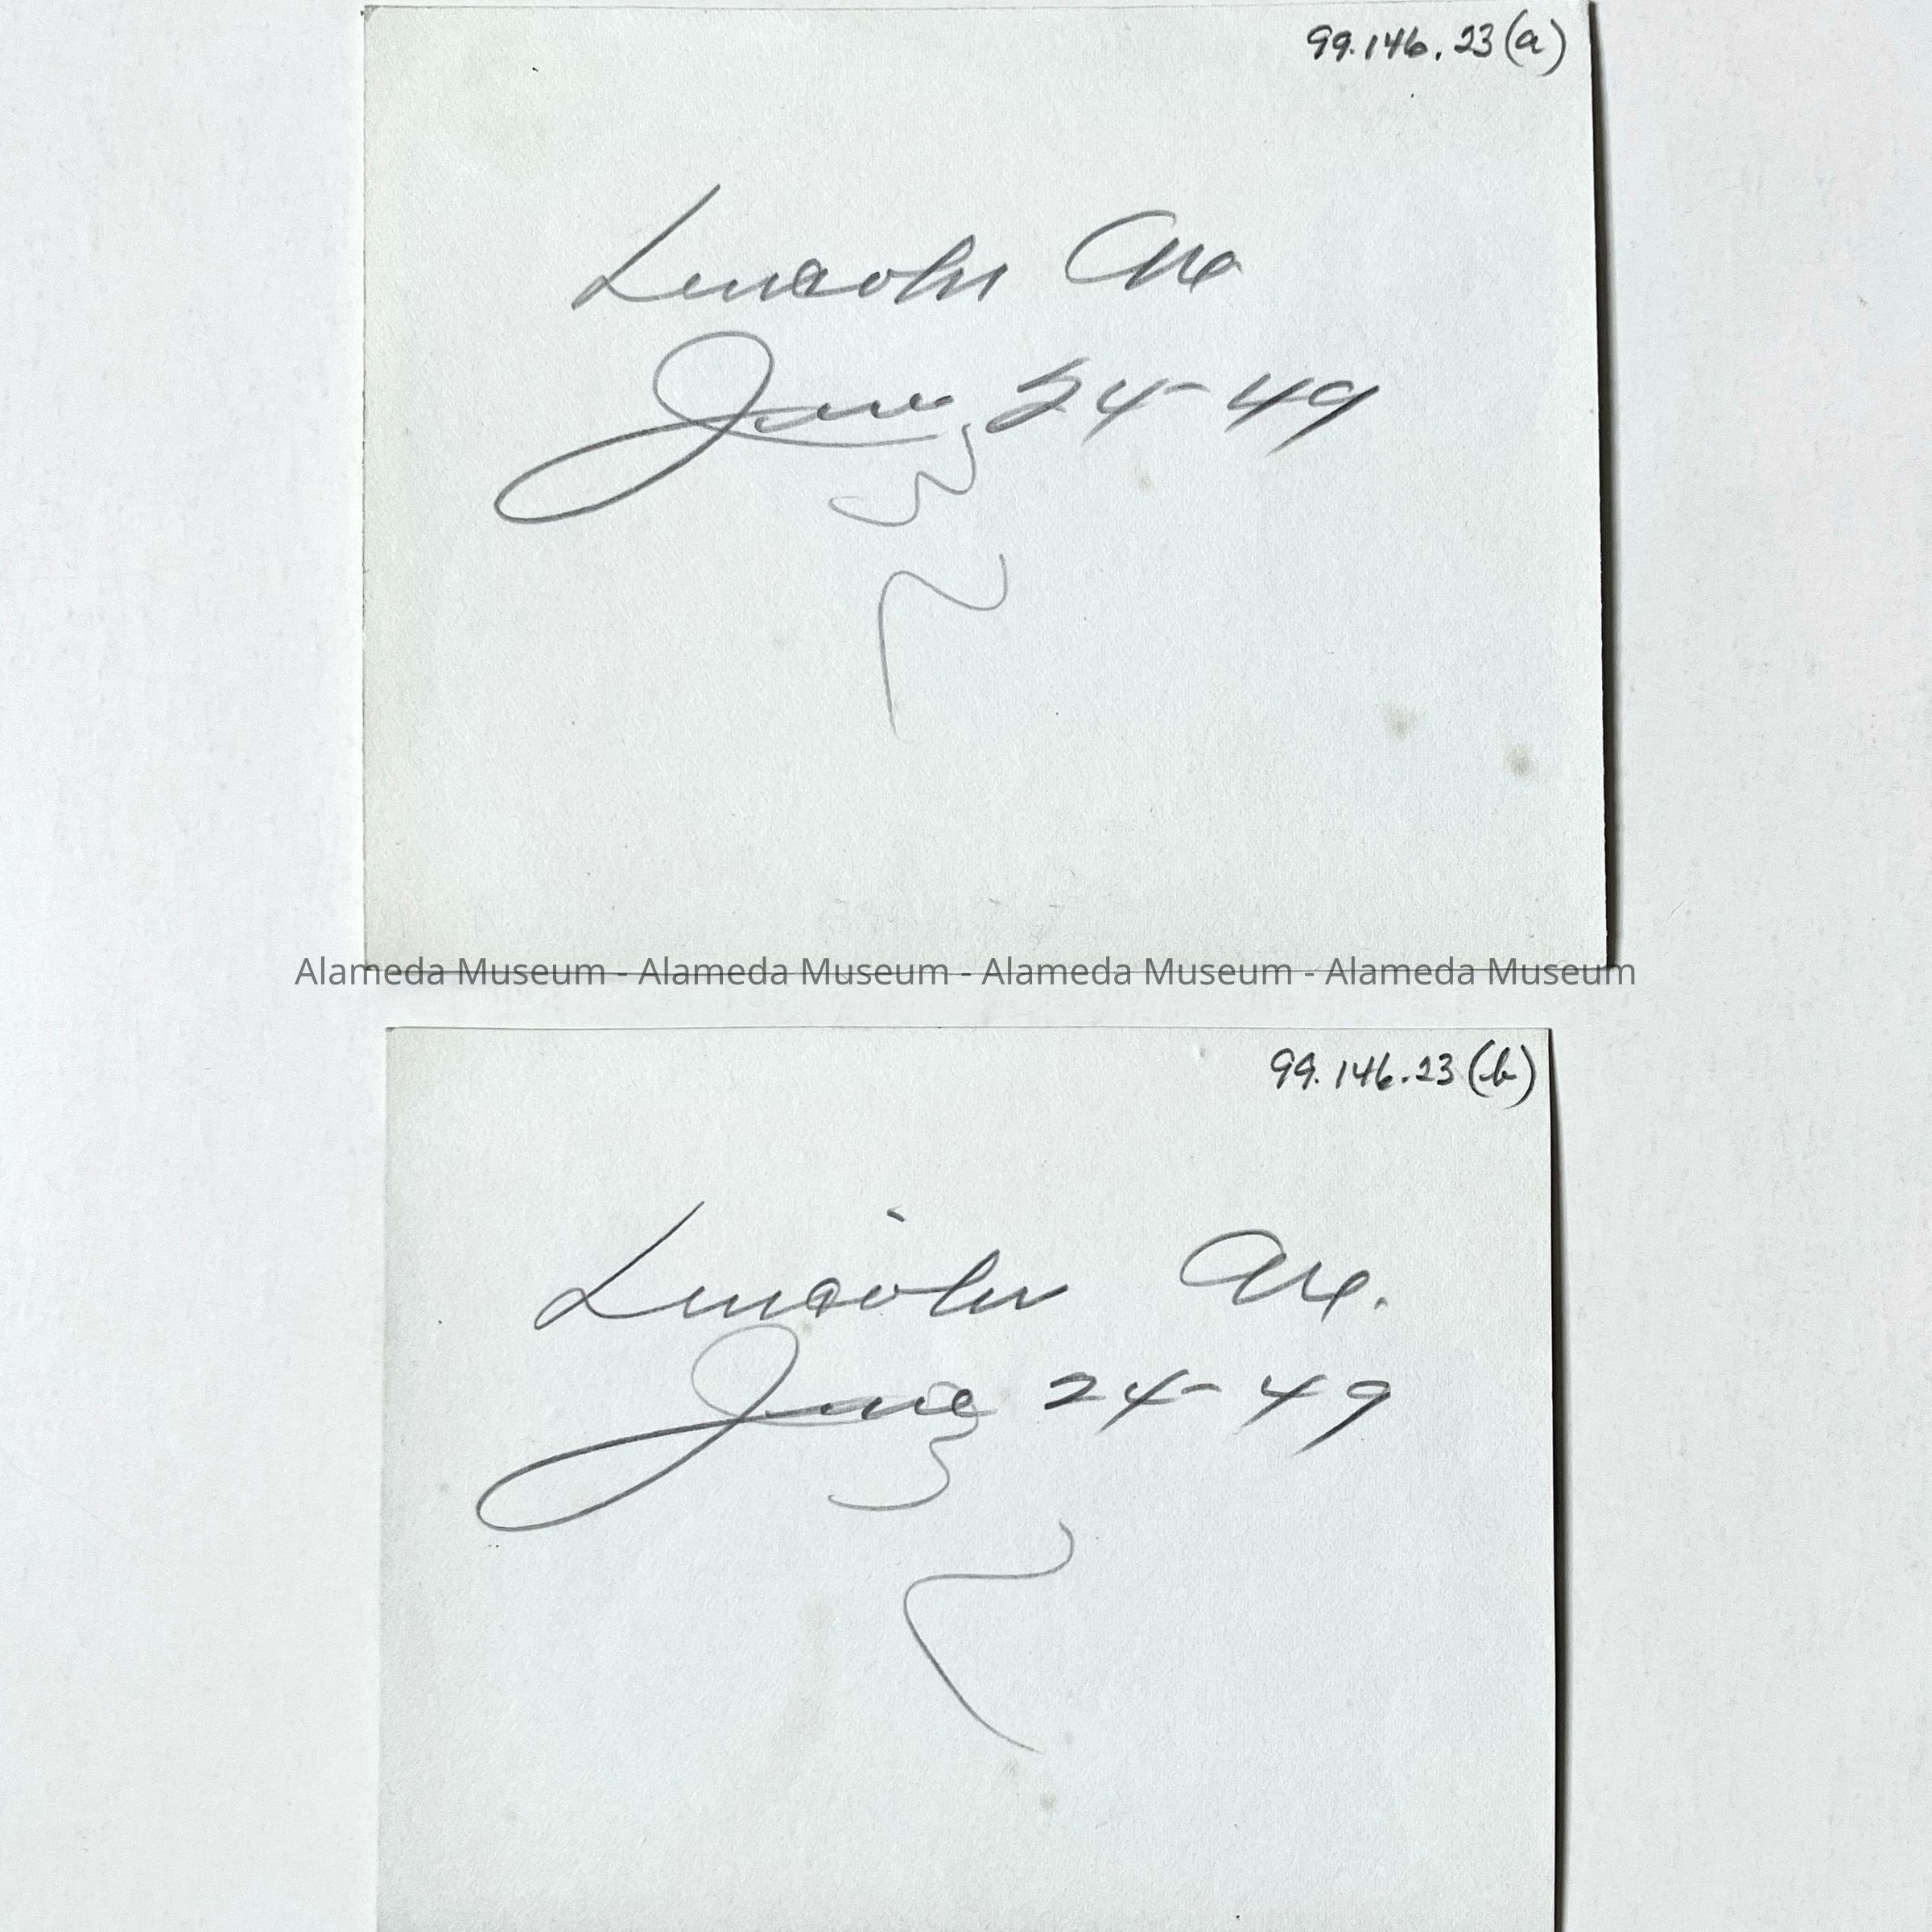 99.146.23(a)
Lincoln Ave
June 24-49
Alameda Museum - Alameda Museum - Alameda Museum - Alameda Museum
99.146.23(b)
Lincoln Ave.
June 24-49